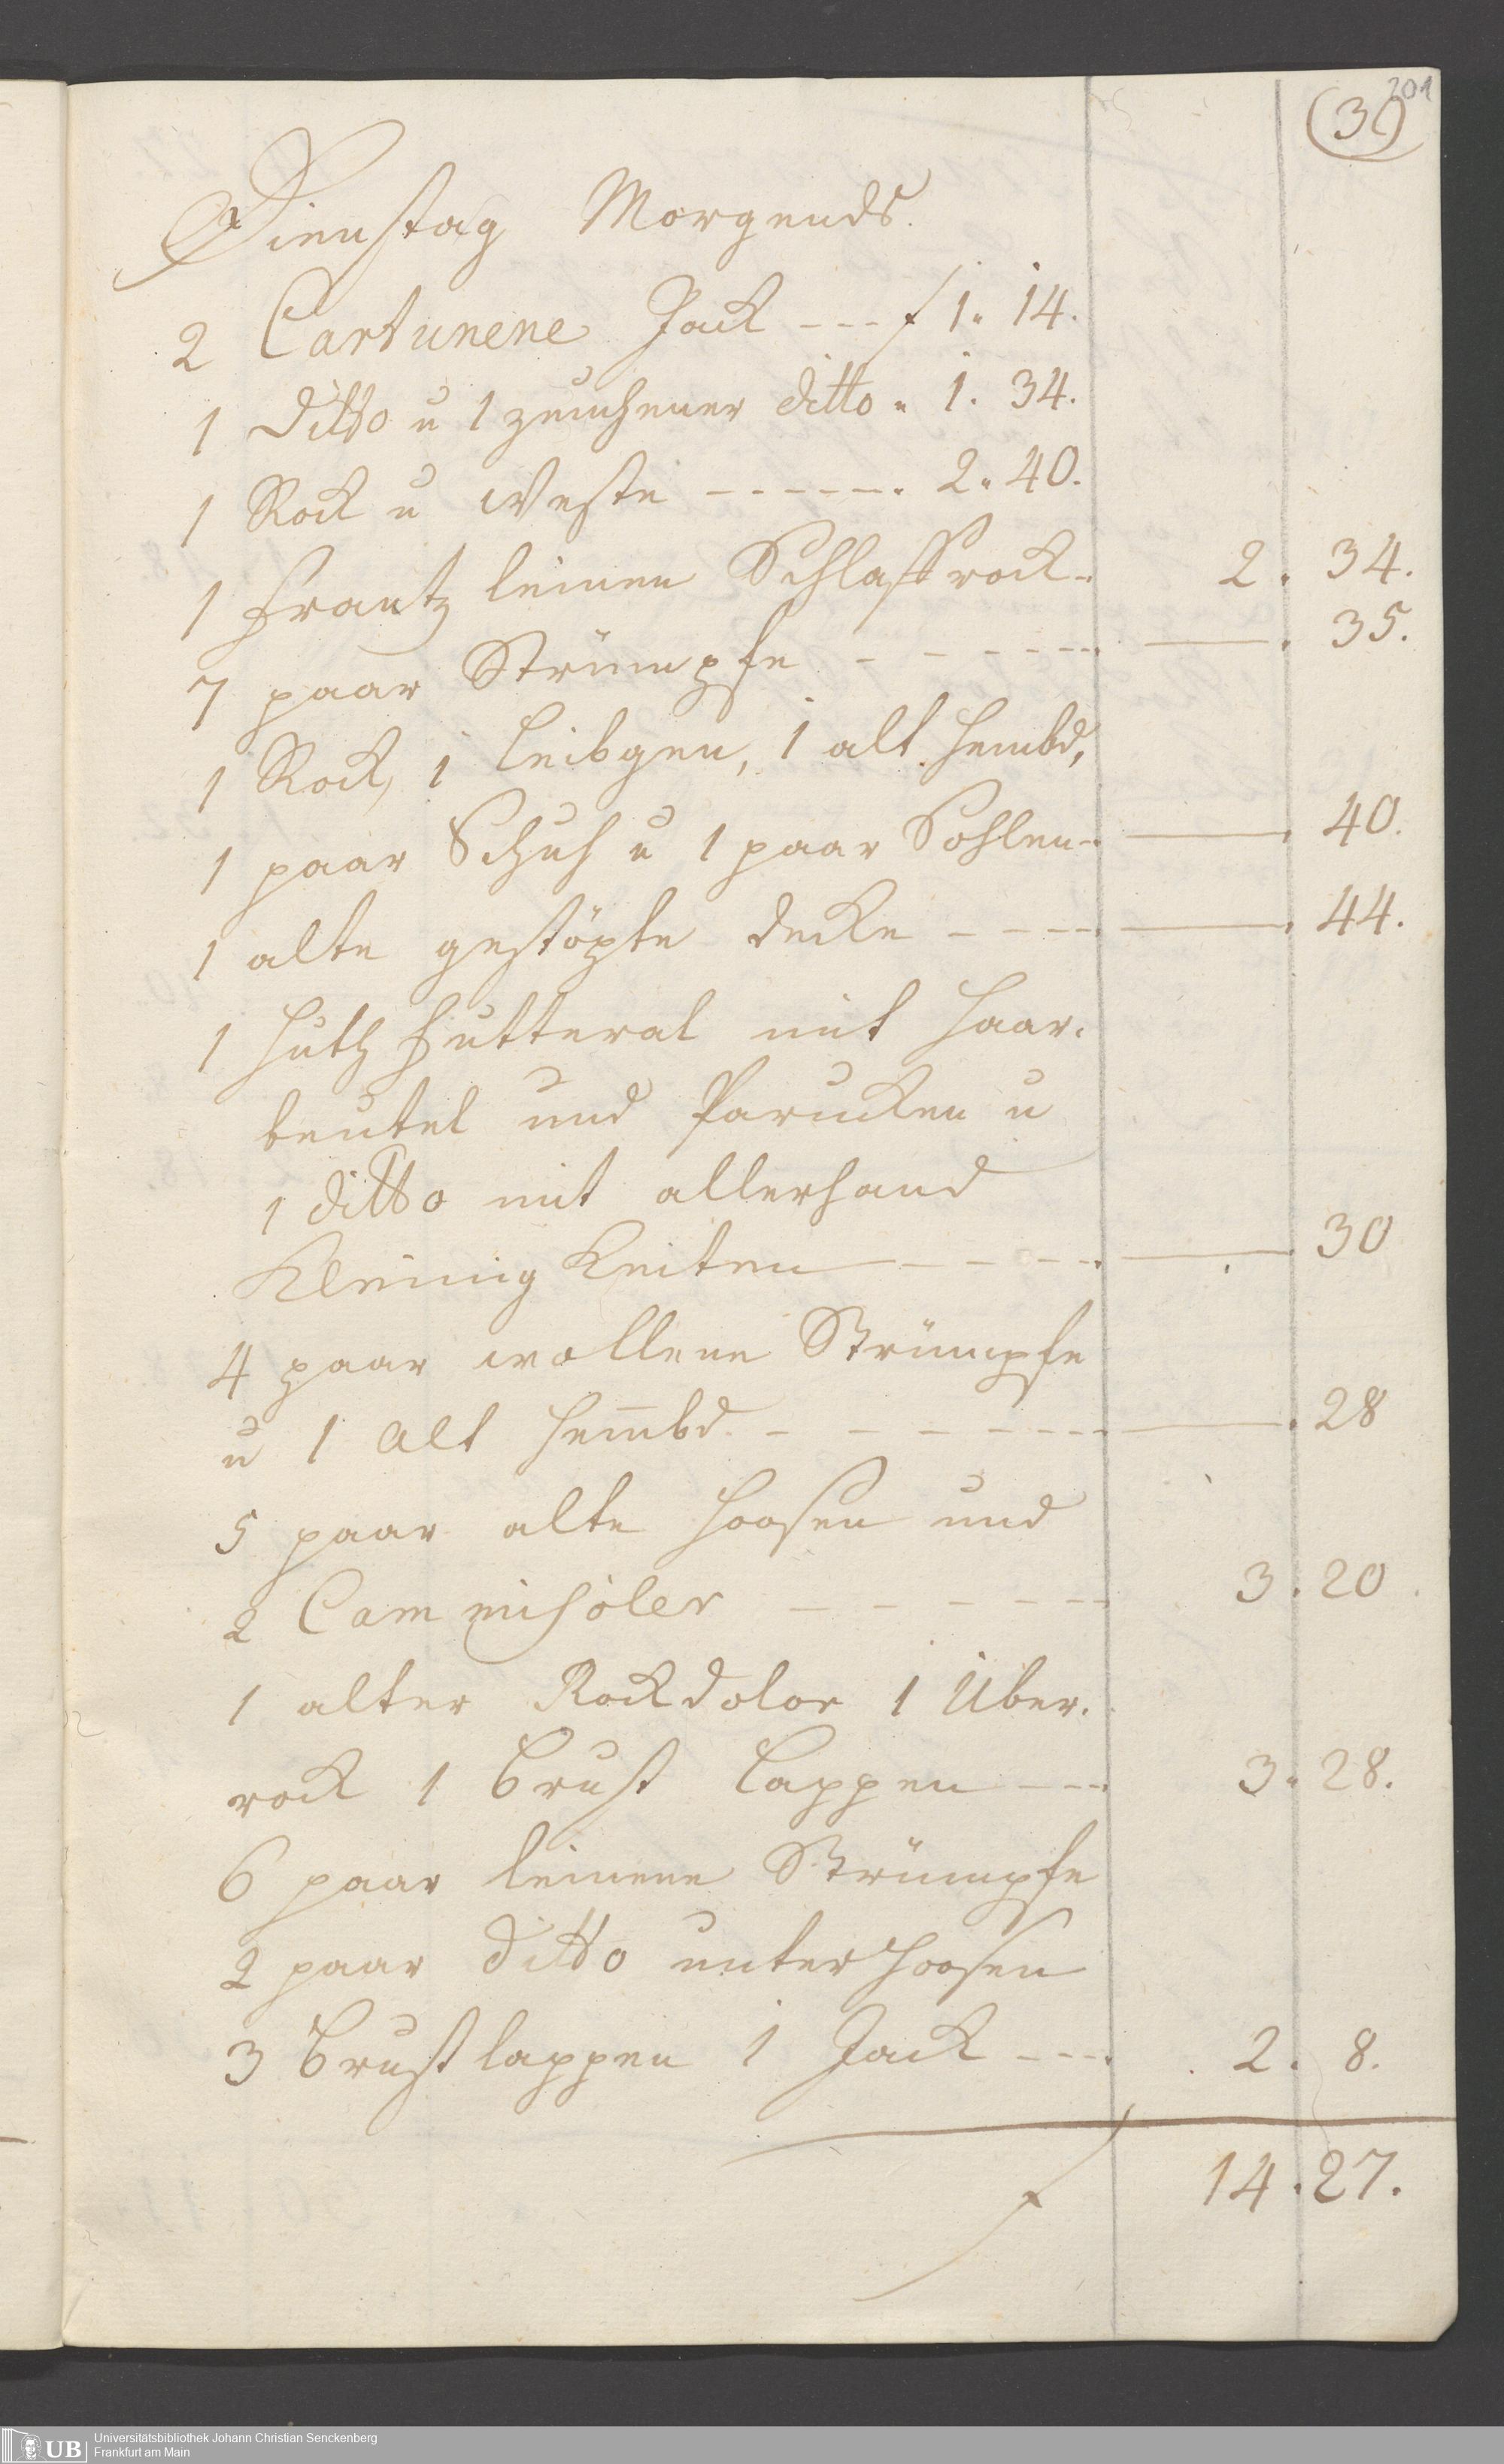 201
(30)
Dienstag Morgends.
2 Cartunene Jack --- f 1. 14.
1 Ditto u 1 ditto . 1. 34.
1 Rock u Weste ------. 2. 40.
1 Frantz leinen Schlaffrock-. 2. 34.
7 paar Strümpfe ------ —. 35.
1 Rock, 1 Leibgen, 1 alt Hembd,
1 paar Schuh u 1 paar Sohlen-. —. 40.
1 alte gestöpte decke ---- —. 44.
1 Huth Futteral mit Haar.
beutel und Parucken u
1 ditto mit allerhand
Kleinig Keiten ---- —. 30
4 paar wollene Strümpfe
u 1 alt Hembd. ------ —. 28
5 paar alte Hoosen und
2 Cammisoler ------ 3. 20
1 alter Rockdolor 1 Uber.
rock 1 Brust Lappen --- 3. 28.
6 paar leinene Strümpfe
2 paar ditto unter Hoosen
3 Brust lappen 1 Jack --- 2. 8.
f 14. 27.
UB
Universitätsbibliothek Johann Christian Senckenberg
Frankfurt am Main